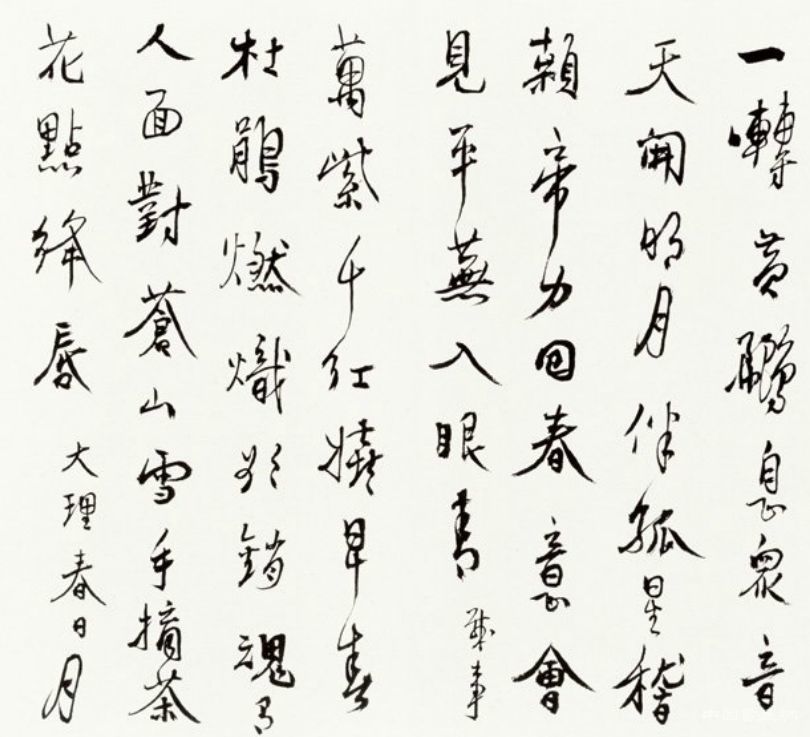 一囀黃鸝息眾音
天開明月伴孤星稽
顙帝力回春意會
見平蕪入眼青 事
萬紫千紅早春
杜鵑燃熾欲銷魂有
人面對蒼山雪手摘茶
花點絳唇 大理春日月